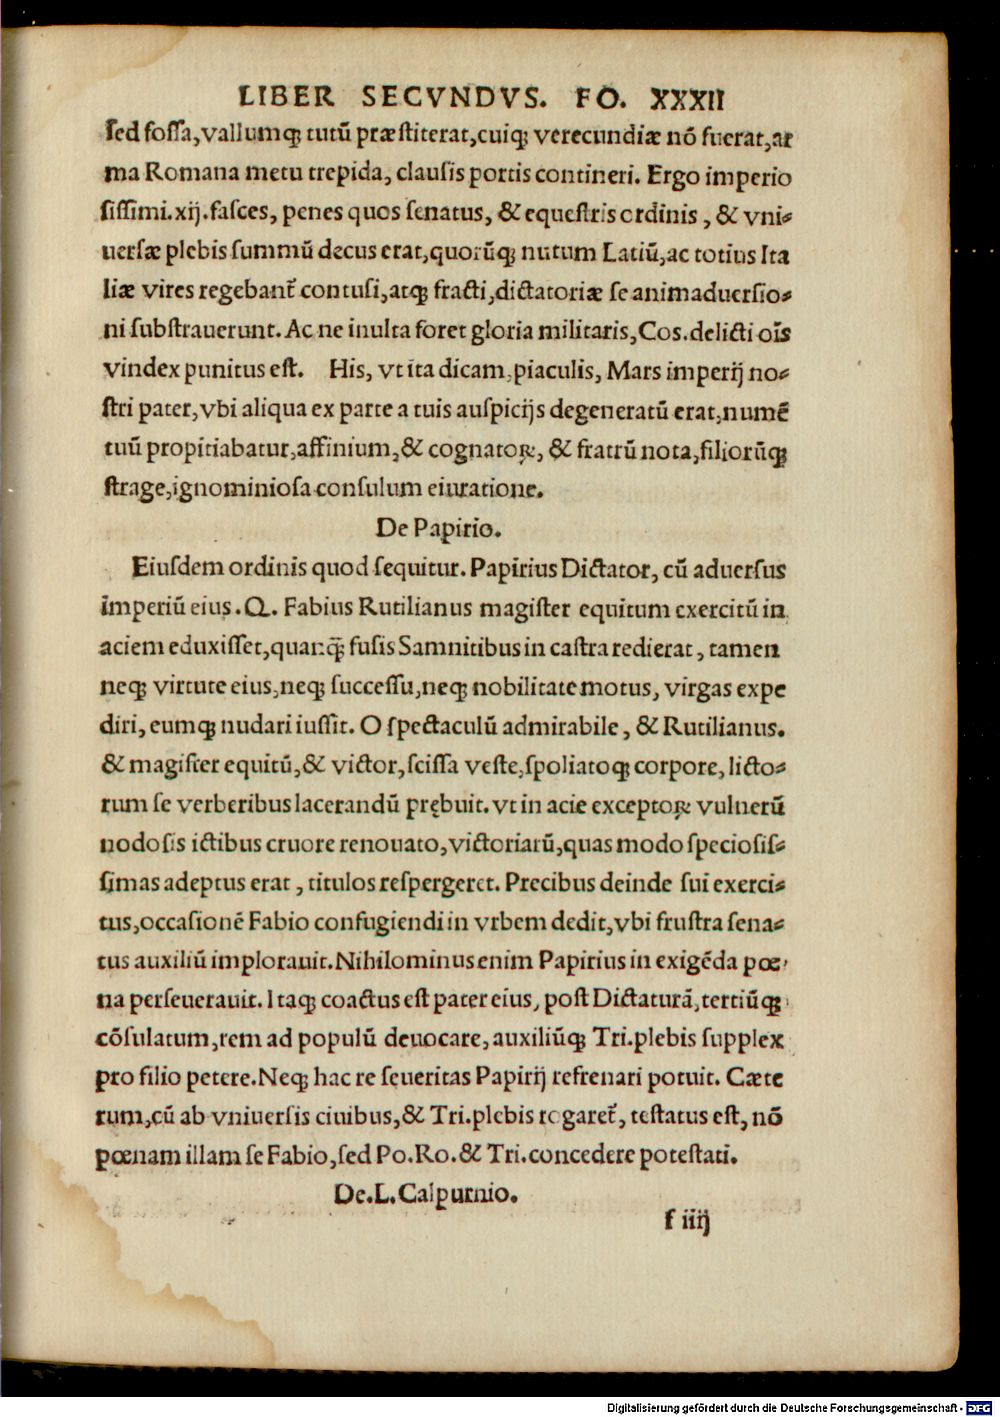 LIBER SECVNDVS. FO. XXXII
sed fossa, vallumq; tutū præstiterat, cuiq; verecundiæ nō fuerat, ar
ma Romana metu trepida, clausis portis contineri. Ergo imperio
sissimi. xij. fasces, penes quos senatus, & equestris ordinis, & vni-
uersæ plebis summū decus erat, quorūq; nutum Latiū, ac totius Ita
liæ vires regebant̃ contusi, atq; fracti, dictatoriæ se animaduersio-
ni substrauerunt. Ac ne inulta foret gloria militaris, Cos. delicti oīs
vindex punitus est. His, vt ita dicam, piaculis, Mars imperij no-
stri pater, vbi aliqua ex parte a tuis auspicijs degeneratū erat, numē
tuū propitiabatur, affinium, & cognatoꝝ, & fratrū nota, filiorūq;
strage, ignominiosa consulum eiuratione.
De Papirio.
Eiusdem ordinis quod sequitur. Papirius Dictator, cū aduersus
imperiū eius. Q. Fabius Rutilianus magister equitum exercitū in
aciem eduxisset, quanq̃; fusis Samnitibus in castra redierat, tamen
neq; virtute eius, neq; successu, neq; nobilitate motus, virgas expe
diri, eumq; nudari iussit. O spectaculū admirabile, & Rutilianus.
& magister equitū, & victor, scissa veste, spoliatoq; corpore, licto-
rum se verberibus lacerandū prębuit. vt in acie exceptoꝝ vulnerū
nodosis ictibus cruore renouato, victoriarū, quas modo speciosis-
simas adeptus erat, titulos respergeret. Precibus deinde sui exerci-
tus, occasionē Fabio confugiendi in vrbem dedit, vbi frustra sena-
tus auxiliū implorauit. Nihilominus enim Papirius in exigēda pœ-
na perseuerauit. Itaq; coactus est pater eius, post Dictaturā, tertiūq;
cōsulatum, rem ad populū deuocare, auxiliūq; Tri. plebis supplex
pro filio petere. Neq; hac re seueritas Papirij refrenari potuit. Cæte
rum, cū ab vniuersis ciuibus, & Tri. plebis rogaret̃, testatus est, nō
pœnam illam se Fabio, sed Po. Ro. & Tri. concedere potestati.
De. L. Calpurnio.
f iiij
Digitalisierung gefördert durch die Deutsche Forschungsgemeinschaft - DFG